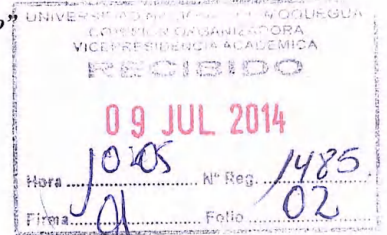 o"
UNIVERSIDAD NACIONAL DE MOQUEGUA
COMISION ORGANIZADORA
VICEPRESIDENCIA ACADEMICA
RECIBIDO
09 JUL 2014
Hora 10:05 N° Reg. 1485
Firma Folio 02